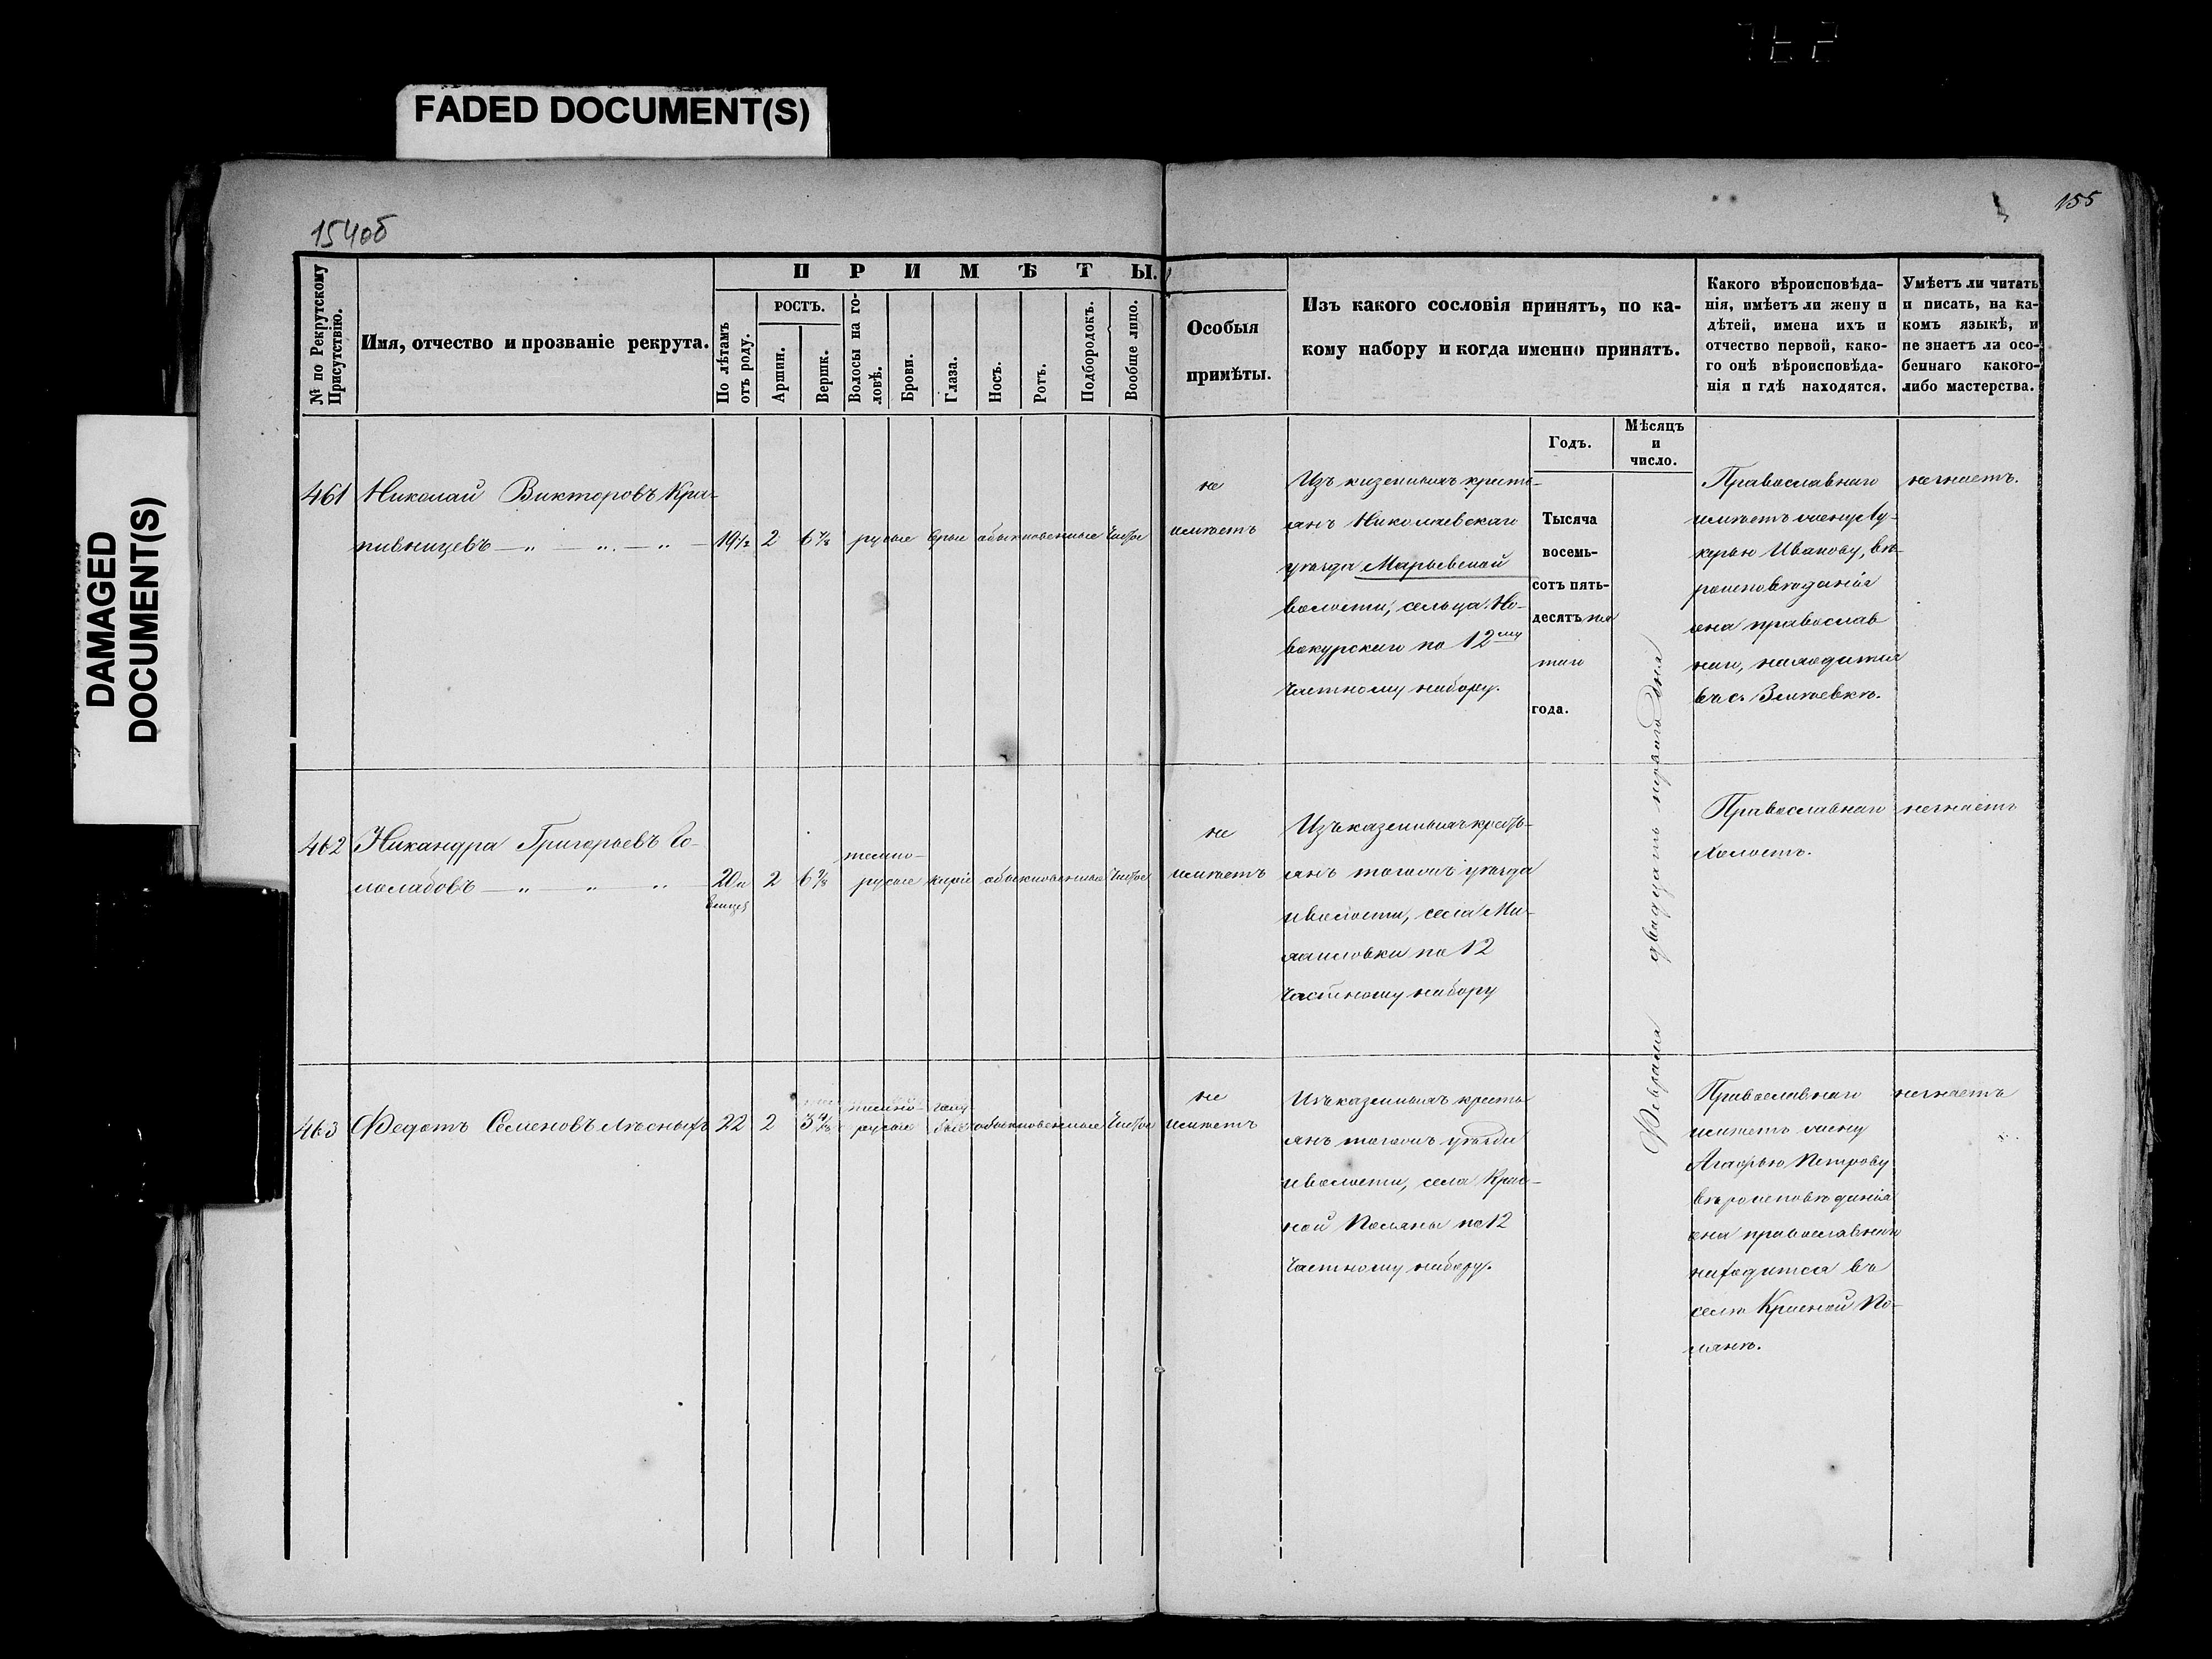 FADED DOCUMENT(S)
DAMAGED
DOCUMENT(S)
154об
155
№ по Рекрутскому
Присутствію.
Имя, отчество и прозваніе рекрута.
ПРИМѢТЫ.
По лѣтамъ
отъ роду.
РОСТЪ.
Аршин.
Вершк.
Волосы на го-
ловѣ.
Брови.
Глаза.
Носъ.
Ротъ.
Подбородокъ.
Вообще лицо.
Особыя
примѣты.
Изъ какого сословія принятъ, по ка-
кому набору и когда именно принятъ.
Годъ.
Мѣсяцъ
и
число.
Какого вѣроисповѣда-
нія, имѣетъ ли жену и
дѣтей, имена ихъ и
отчество первой, како-
го онѣ вѣроисповѣда-
нія и гдѣ находятся.
Умѣетъ ли читать
и писать, на ка-
комъ языкѣ, и
не знаетъ ла осо-
беннаго какого-
либо мастерства.
461
Николай Викторовъ Кра-
пивницевъ — „ — „ — „ —
19½ 2 6 ⅞ русые сѣрые обыкновенные чистое
не
имѣетъ
Изъ казенныхъ кресть-
янъ Николаевскаго
уѣзда Марьевской
волости, сельца Но-
вокурскаго по 12му
частному набору.
Тысяча
восемь-
сотъ пять-
десятъ пя
таго
года.
Февраля двадцать перваго дня
Православнаго
имѣетъ жену Лу-
керью Иванову, вѣ-
роисповѣданія
она православ
наго, находится
въ с. Змѣевкѣ.
незнаетъ.
462
Никандра Григорьевъ Го-
лолобовъ — „ — „ — „ —
20 2 6 ⅞ темно-
русые каріе обыкновенные чистое
не
имѣетъ
Изъ казенныхъ кресть-
янъ тогожъ уѣзда
и волости, села Ми-
хаиловки по 12
частному набору
Православнаго
Холостъ.
незнаетъ
463
Федотъ Семеновъ Лѣсныхъ 22 2 3 ⅞ темно-
русые голу
бые обыкновенные чистое
не
имѣетъ
Изъ казенныхъ кресть
янъ тогожъ уѣзда
и волости, села Крас-
ной Поляны по 12
частному набору.
Православнаго
имѣетъ жену
Агафью Петрову
вѣроисповѣданія
она православнаго
находится въ
селѣ Красной По-
лянѣ.
незнаетъ